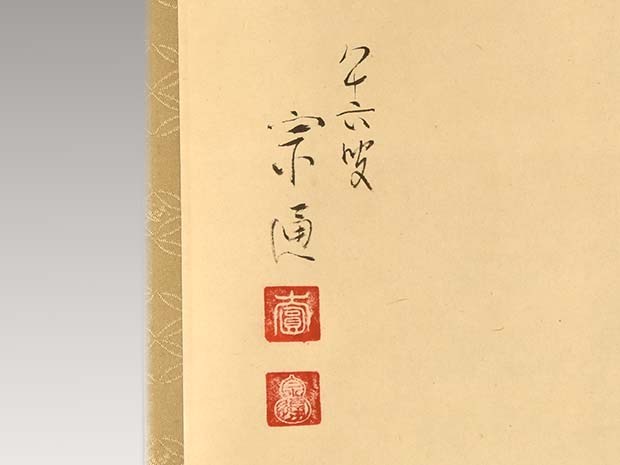 八十六叟
宗通